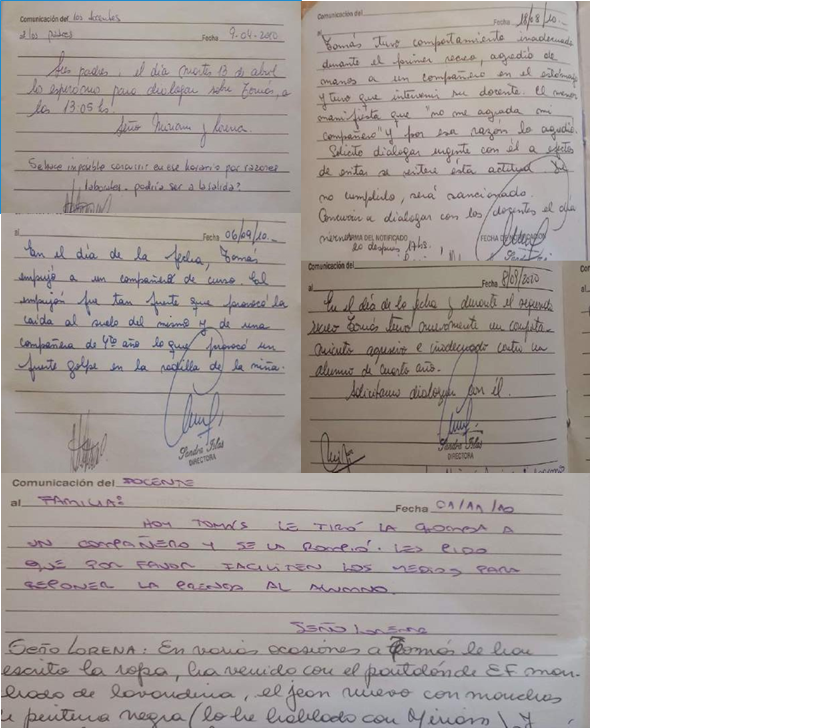 Comunicación del los docentes
a los padres Fecha 9-04-2010
Sres padres: el día martes 13 de abril
los esperamos para dialogar sobre Tomás, a
las 13:05 hs.
Seño Miriam y Lorena.
imposible concurrir en ese horario por razones
laborales. podría ser a la salida?
Fecha 18/08/10
al
Tomás tuvo comportamiento inadecuado
durante el primer recreo, agredió de
manos a un compañero en el estómago
y tuvo que intervenir su docente. El menor
manifiesta que "no me agrada mi
compañero" y por esa razón lo agredió.
Solicito dialogar urgente con él a efectos
de evitar se reitere ésta actitud. De
no cumplirlo, será sancionado.
Concurrir a dialogar con los docentes el día
FIRMA DEL NOTIFICADO FECHA DE NOTIFICACIÓN
después 17 hs.
al Fecha 06/09/10
En el día de la fecha, Tomás
empujó a un compañero de curso. El
empujón fue tan fuerte que provocó la
caída al suelo del mismo y de una
compañera de 4to año lo que provocó un
fuerte golpe en la rodilla de la niña.
Sandra Islas
DIRECTORA
Comunicación del
Fecha 8/09/2010
En el día de la fecha y durante el segundo
recreo Tomás tuvo nuevamente un comporta-
miento agresivo e inadecuado contra un
alumno de cuarto año.
Solicitamos dialogar con él.
Sandra Islas
DIRECTORA
Comunicación del DOCENTE
al FAMILIA: Fecha 01/11/10
HOY TOMÁS LE TIRÓ LA A
UN COMPAÑERO Y SE LA ROMPIÓ. LES PIDO
QUE POR FAVOR FACILITEN LOS MEDIOS PARA
REPONER LA PRENDA AL ALUMNO.
SEÑO LORENA
SEÑO LORENA: En varias ocasiones a Tomás le han
escrito la ropa, ha venido con el pantalón de EF man-
chado de lavandina, el jean nuevo con manchas
pintura negra (lo he hablado con Miriam) y